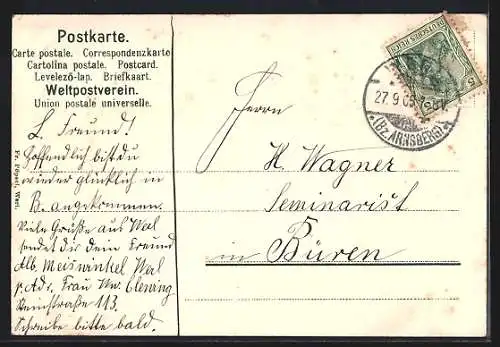 Postkarte.
Carte postale. Correspondenzkarte
Cartolina postale. Postcard.
Levelező-lap. Briefkaart.
Weltpostverein.
Union postale universelle.
L. Freund!
Hoffentlich bist du
wieder glücklich in
B. angekommen.
Viele Grüße aus Werl
sendet dir dein Freund
Alb. Meiswinkel Werl
p. Adr. Frau Ww. Clenring
Steinstraße 113.
Schreibe bitte bald.
DEUTSCHES REICH
5
27.9.05
*(BZ. ARNSBERG)*
Herrn
H. Wagner
Seminarist
in Büren